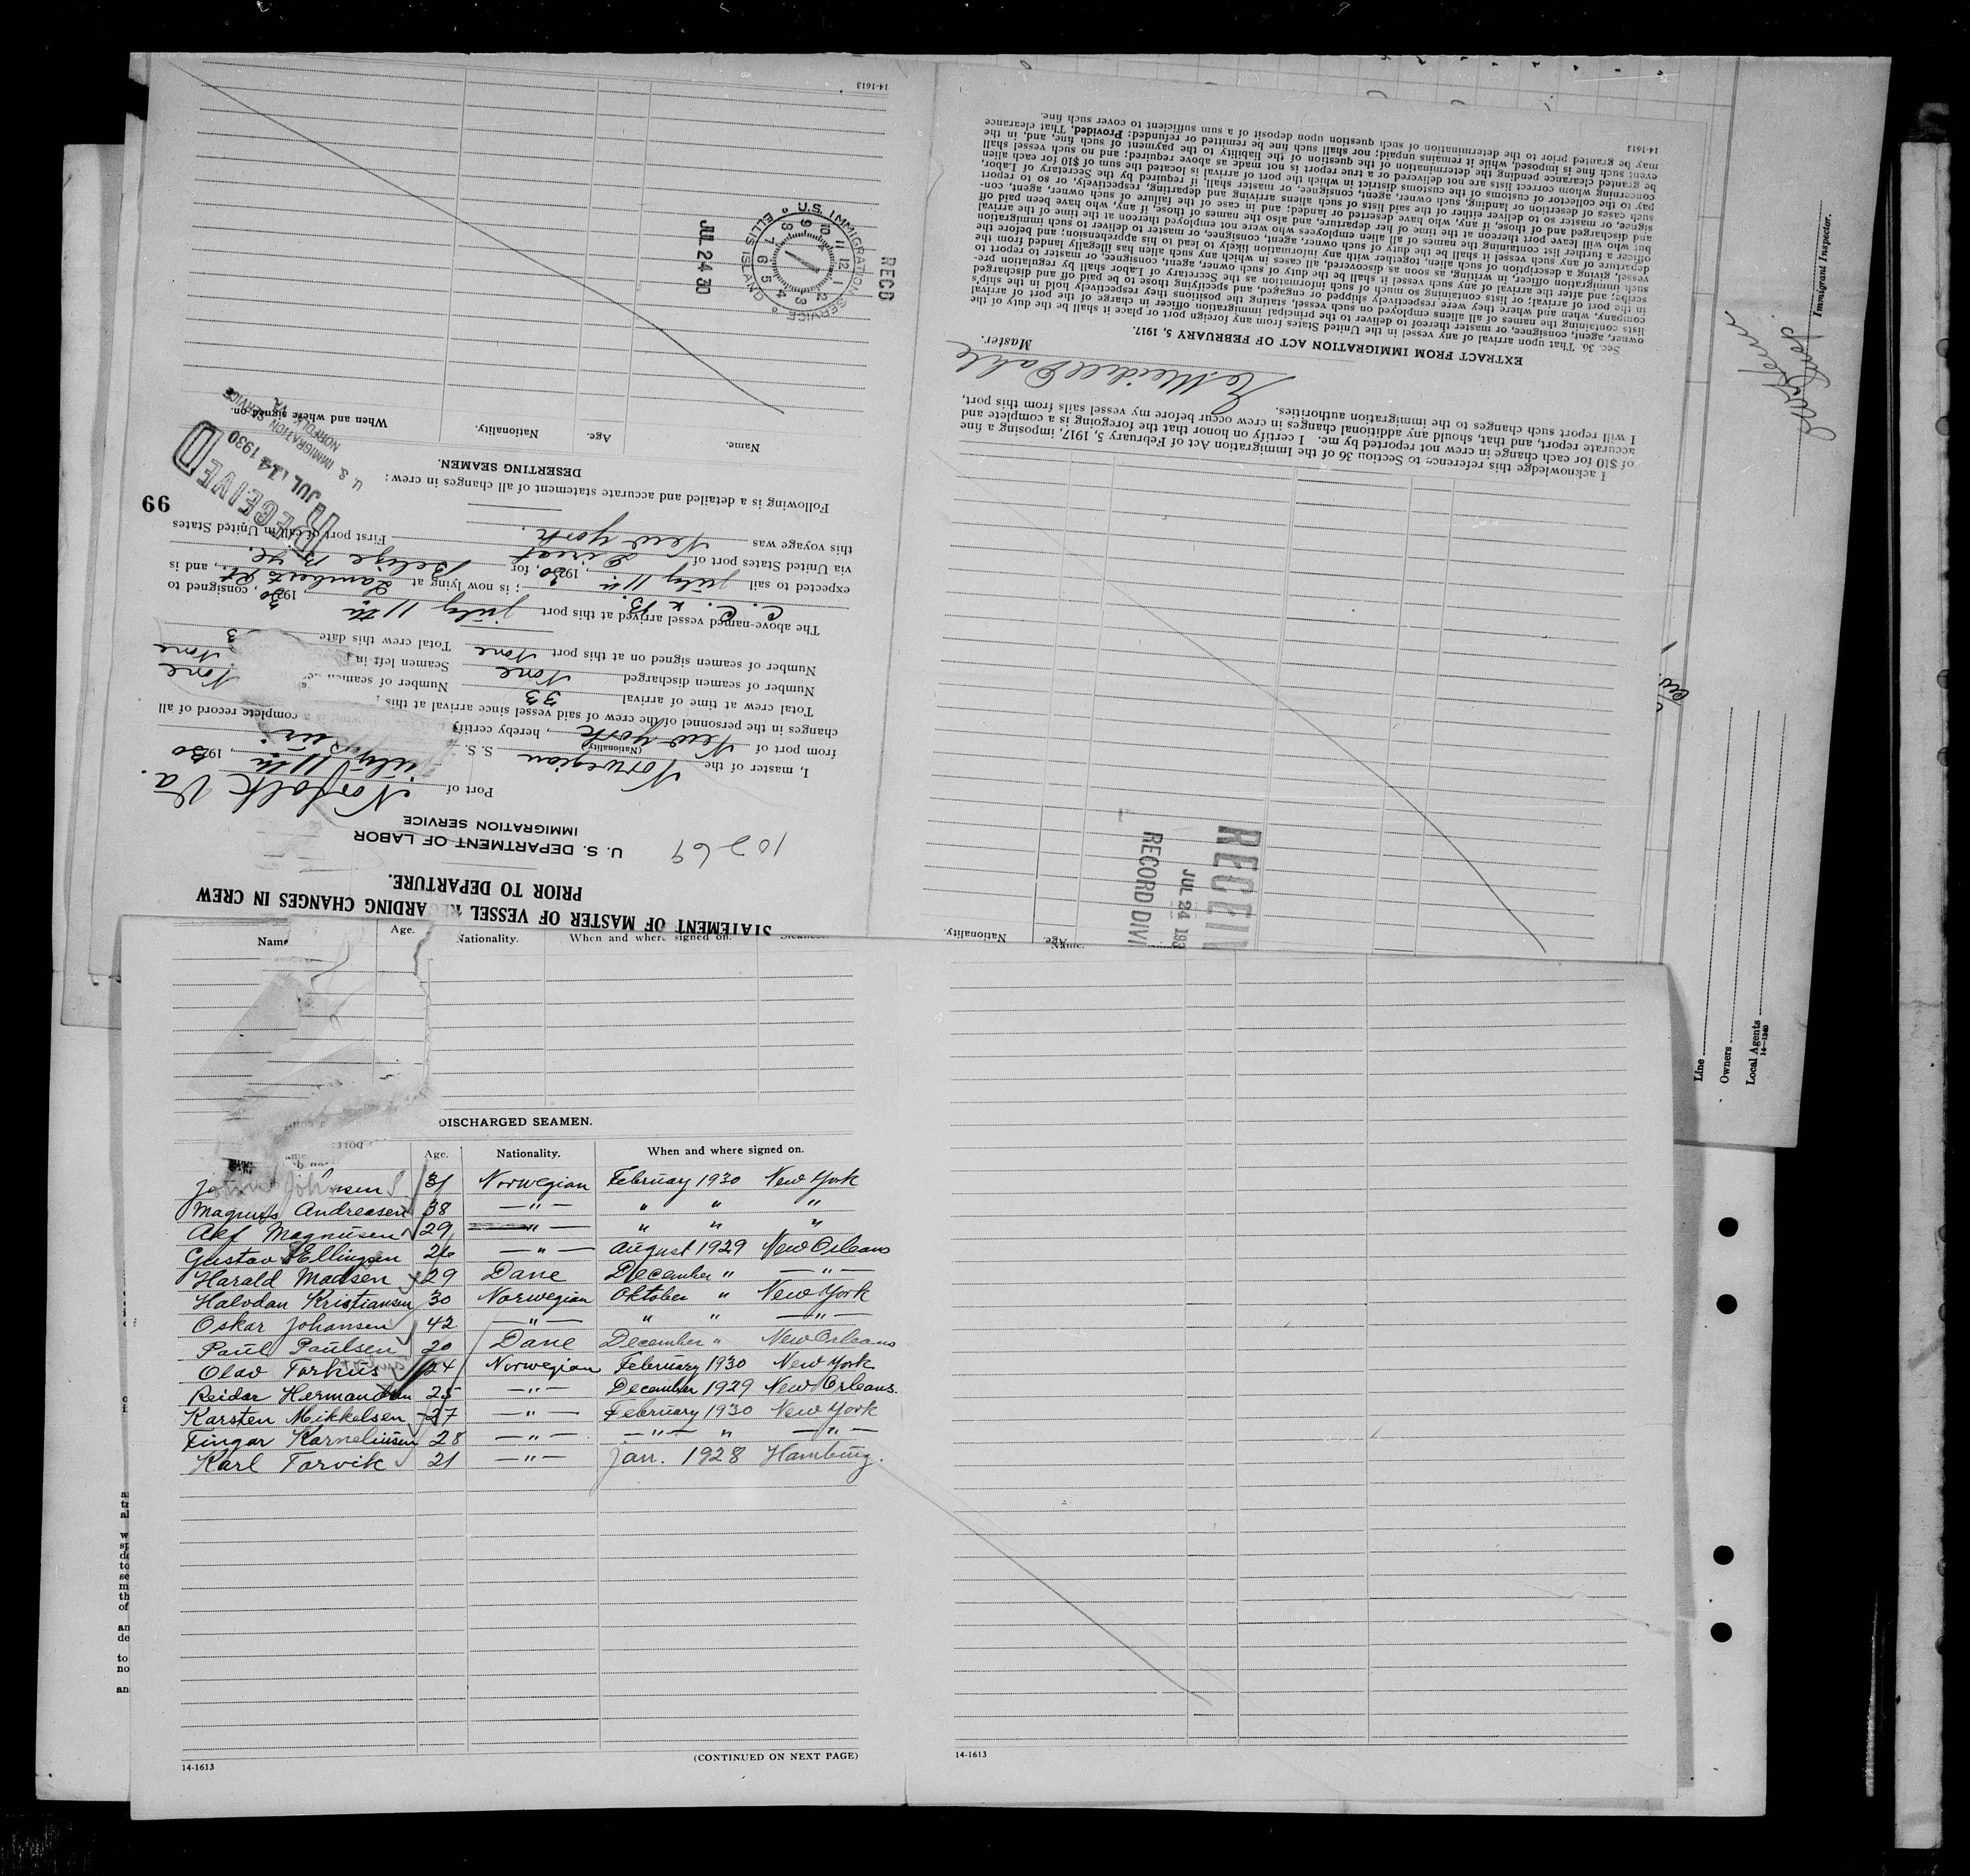 STATEMENT OF MASTER OF VESSEL REGARDING CHANGES IN CREW
PRIOR TO DEPARTURE.
10269
U. S. DEPARTMENT OF LABOR
IMMIGRATION SERVICE
Port of Norfolk Va.
July 11th, 1930
I, master of the Norwegian S. S.
(Nationality)
from port of New York, hereby certify
changes in the personnel of the crew of said vessel since arrival at this
complete record of all
Total crew at time of arrival 33
Number of seamen
None
Number of seamen discharged None
Seamen left in
None
Number of seamen signed on at this port None
Total crew this date
The above-named vessel arrived at this port July 11th, 1930, consigned to
C. C. & B.; is now lying at Lamberts Pt, and is
expected to sail July 11th, 1930, for Belize B. H.
via United States port of Direct
First port of call in United States
this voyage was New York.
Following is a detailed and accurate statement of all changes in crew:
DESERTING SEAMEN.
Name. Age. Nationality. When and where signed on.
99
RECEIVED
JUL 14 1930
U. S. IMMIGRATION SERVICE
NORFOLK VA
RECD
U.S. IMMIGRATION SERVICE
ELLIS ISLAND
12 1 2 3 4 5 6 7 8 9 10 11
JUL 24 30
14-1613
Nationality. Age. Name.
RECEIV
JUL 24 193
RECORD DIVI
I acknowledge this reference to Section 36 of the Immigration Act of February 5, 1917, imposing a fine
of $10 for each change in crew not reported by me. I certify on honor that the foregoing is a complete and
accurate report, and that, should any additional changes in crew occur before my vessel sails from this port,
I will report such changes to the immigration authorities.
Master.
EXTRACT FROM IMMIGRATION ACT OF FEBRUARY 5, 1917.
Sec. 36. That upon arrival of any vessel in the United States from any foreign port or place it shall be the duty of the
owner, agent, consignee, or master thereof to deliver to the principal immigration officer in charge of the port of arrival
lists containing the names of all aliens employed on such vessel, stating the positions they respectively hold in the ship's
company, when and where they were respectively shipped or engaged, and specifying those to be paid off and discharged
in the port of arrival; or lists containing so much of such information as the Secretary of Labor shall by regulation pre-
scribe; and after the arrival of any such vessel it shall be the duty of such owner, agent, consignee, or master to report to
such immigration officer, in writing, as soon as discovered, all cases in which any such alien has illegally landed from the
vessel, giving a description of such alien, together with any information likely to lead to his apprehension; and before the
departure of any such vessel it shall be the duty of such owner, agent, consignee, or master to deliver to such immigration
officer a further list containing the names of all alien employees who were not employed thereon at the time of the arrival
but who will leave port thereon at the time of her departure, and also the names of those, if any, who have been paid off
and discharged and of those, if any, who have deserted or landed; and in case of the failure of such owner, agent, con-
signee, or master so to deliver either of the said lists of such aliens arriving and departing, respectively, or so to report
such cases of desertion or landing, such owner, agent, consignee, or master shall, if required by the Secretary of Labor,
pay to the collector of customs of the customs district in which the port of arrival is located the sum of $10 for each alien
concerning whom correct lists are not delivered or a true report is not made as above required; and no such vessel shall
be granted clearance pending the determination of the question of the liability to the payment of such fine, and, in the
event such fine is imposed, while it remains unpaid; nor shall such fine be remitted or refunded: Provided, That clearance
may be granted prior to the determination of such question upon deposit of a sum sufficient to cover such fine.
14-1613
Immigrant Inspector.
Line
Owners
Local Agents
Name Age. Nationality. When and where signed on.
Name.
DISCHARGED SEAMEN.
Age. Nationality. When and where signed on.
31 Norwegian February 1930 New York
Magnus Andreasen 38 —"— " " "
Alf Magnusen 29 —"— " " "
Gustav Ellingsen 26 —"— August 1929 New Orleans
Harald Madsen 29 Dane December " —"—
Halvdan Kristiansen 30 Norwegian Oktober " New York
Oskar Johansen 42 —"— " " —"—
Paul Paulsen 20 Dane December " New Orleans
Olav Torhus 24 Norwegian February 1930 New York
Reidar Hermansen 25 —"— December 1929 New Orleans.
Karsten Mikkelsen 27 —"— February 1930 New York
Fingar Karneliusen 28 —"— —"— " —"—
Karl Torvik 21 —"— Jan. 1928 Hamburg.
(CONTINUED ON NEXT PAGE)
14-1613
14-1613